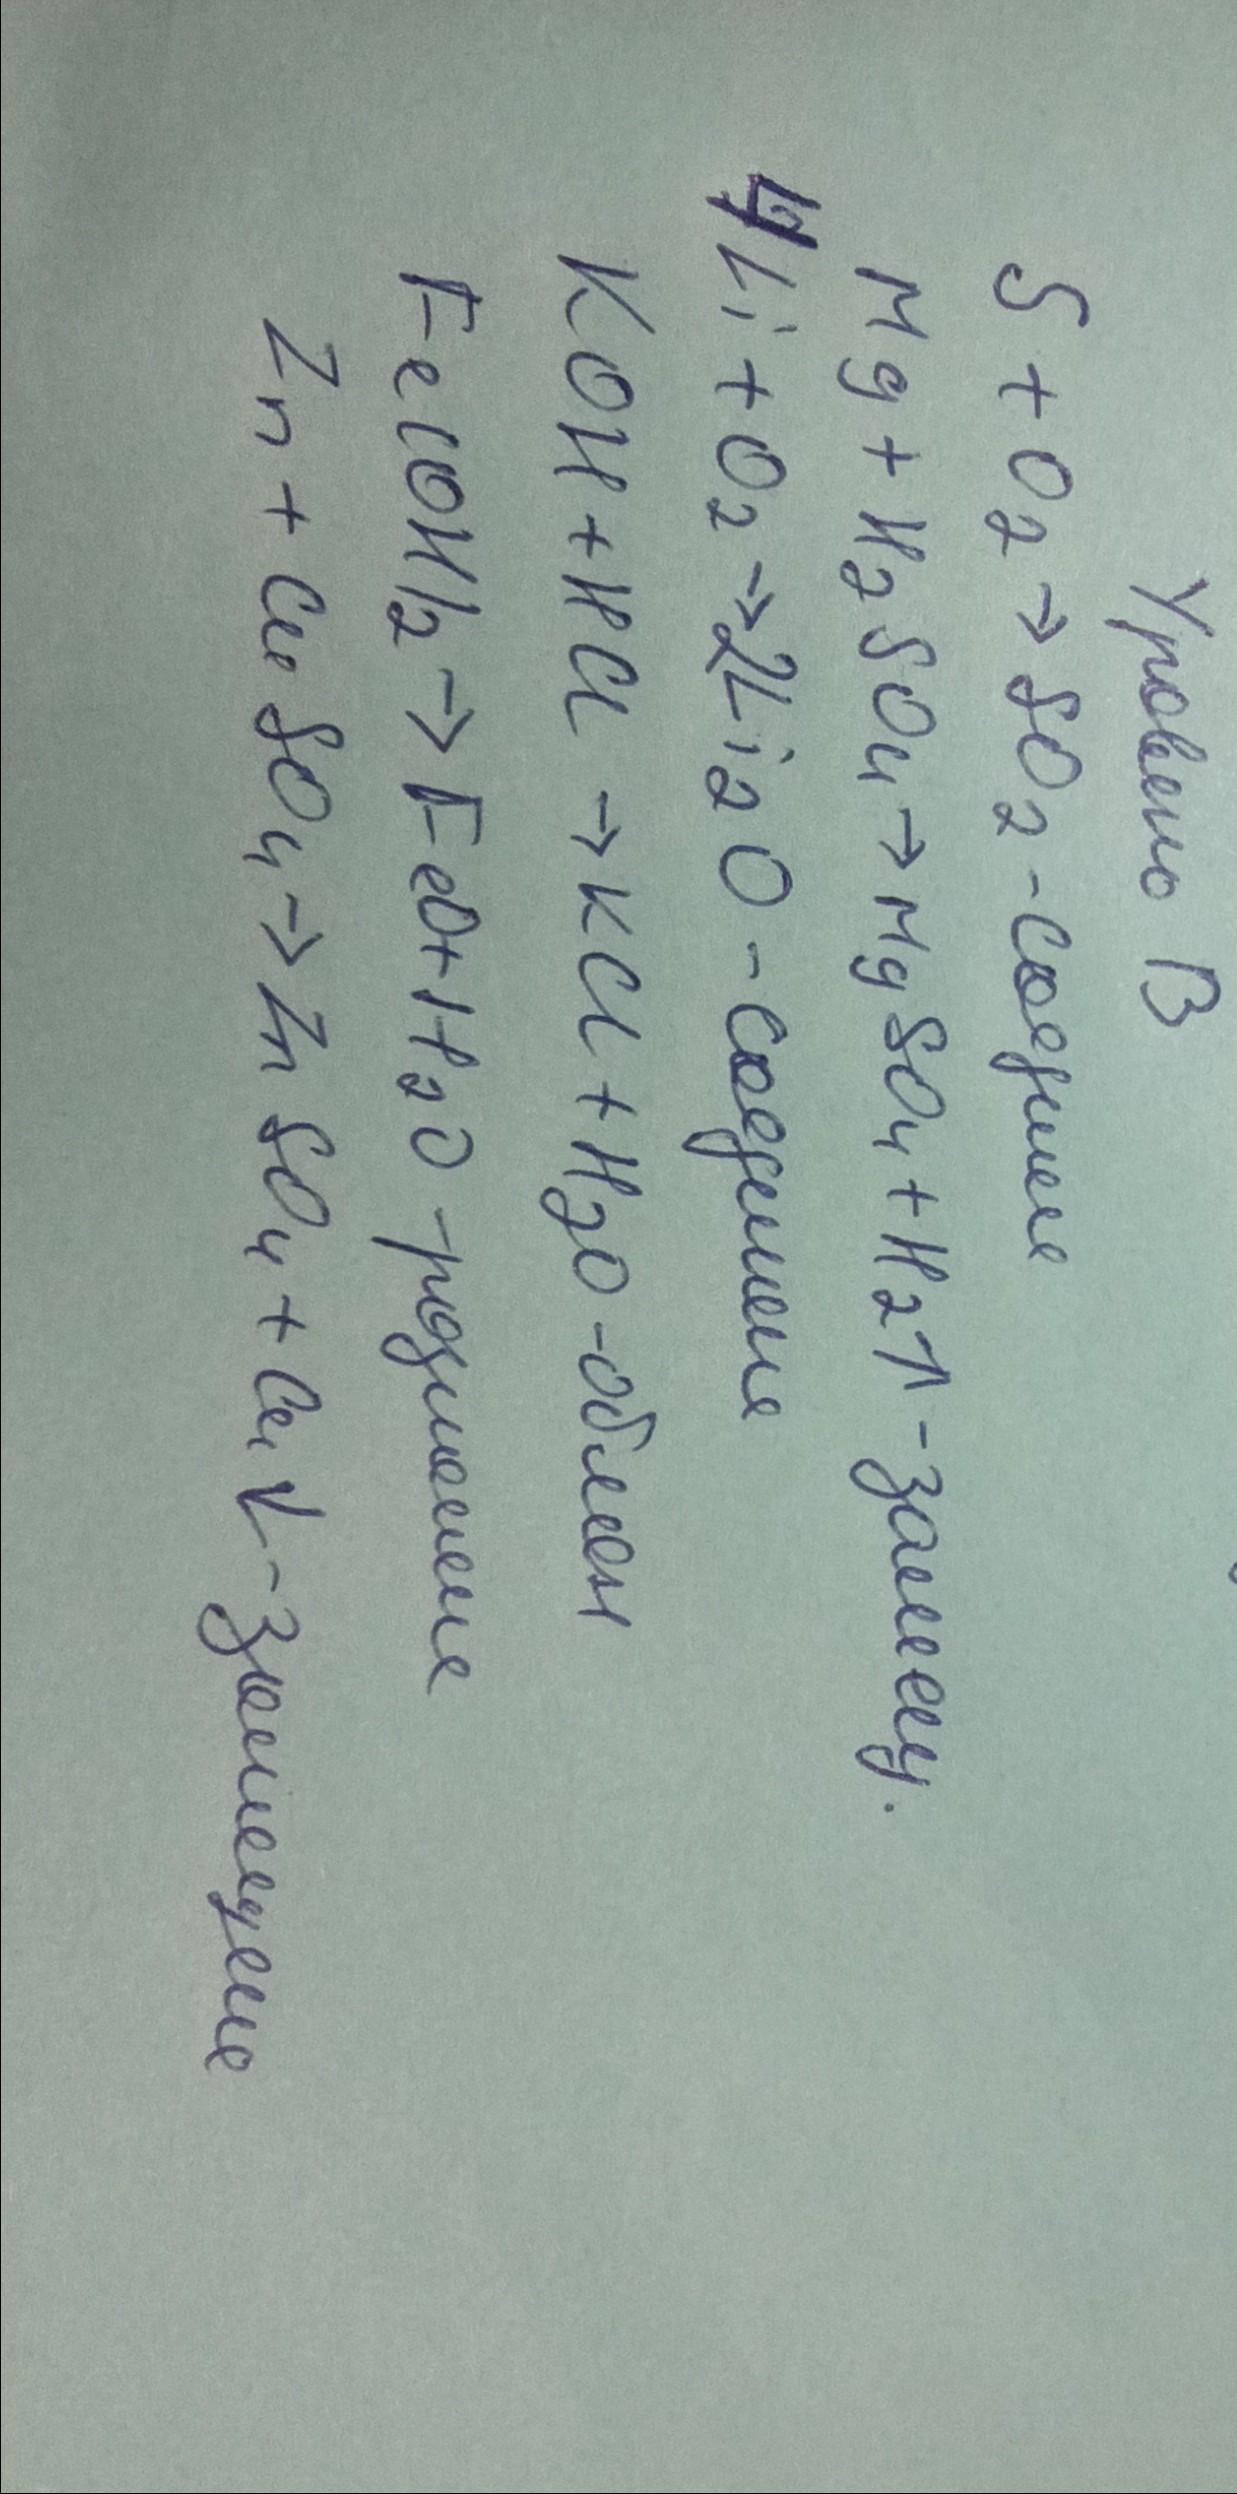 Уровень В
S + O2 → SO2 - соединение
Mg + H2SO4 → MgSO4 + H2↑ - замещ.
4Li + O2 → 2Li2O - соединение
KOH + HCl → KCl + H2O - обмен
Fe(OH)2 → FeO + H2O - разложение
Zn + CuSO4 → ZnSO4 + Cu↓ - замещение